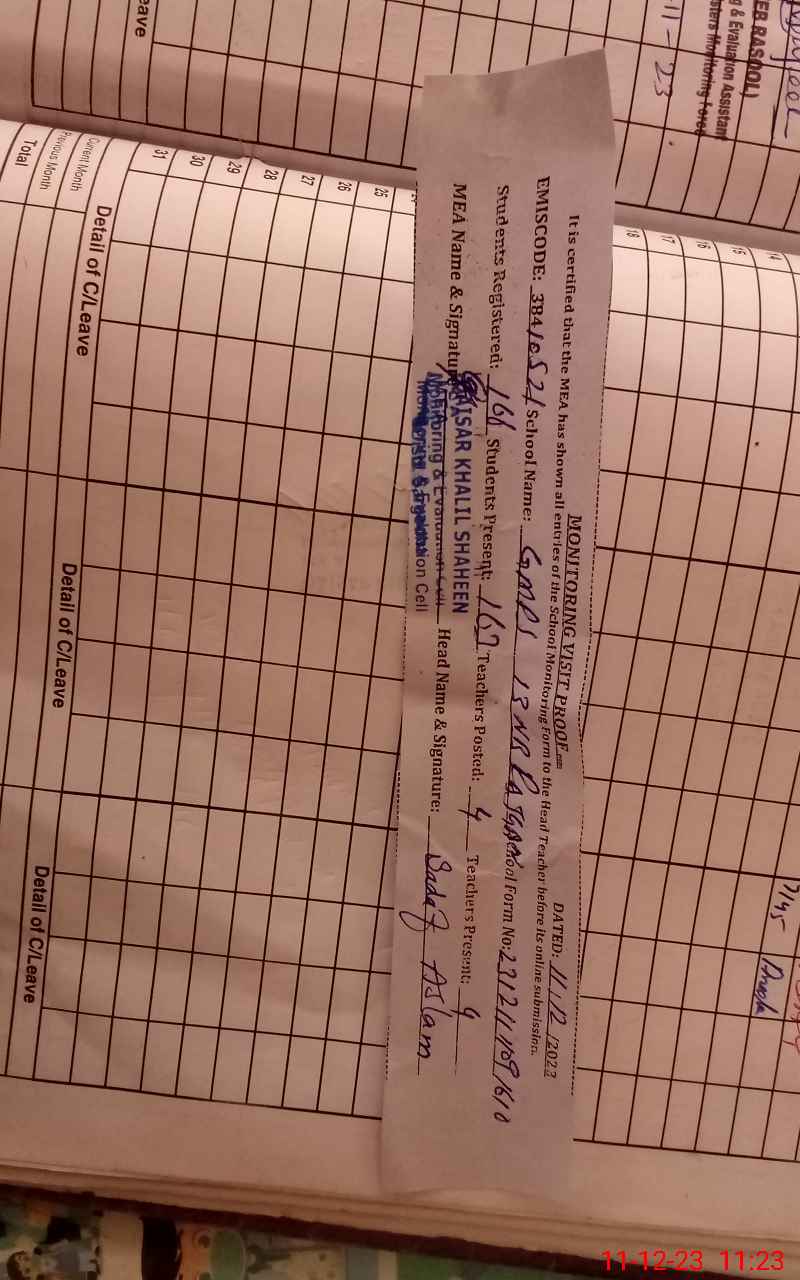 MONITORING VISIT PROOF
DATED: 11/12/2023
It is certified that the MEA has shown all entries of the School Monitoring Form to the Head Teacher before its online submission.
EMISCODE: 38410521 School Name: GMPS 13 NB School Form No:
Students Registered: 168 Students Present: 167 Teachers Posted: 4 Teachers Present: 4
MEA Name & Signature Head Name & Signature: Sadaf Aslam
QAISAR KHALIL SHAHEEN
Monitoring & Evaluation Cell
EB RASOOL)
g & Evaluation Assistant
sters Monitoring Force
11-23
eave
14
15
16
17
18
25
26
27
28
29
30
31
Current Month
Previous Month
Total
Detail of C/Leave
Detail of C/Leave
Detail of C/Leave
11-12-23 11:23